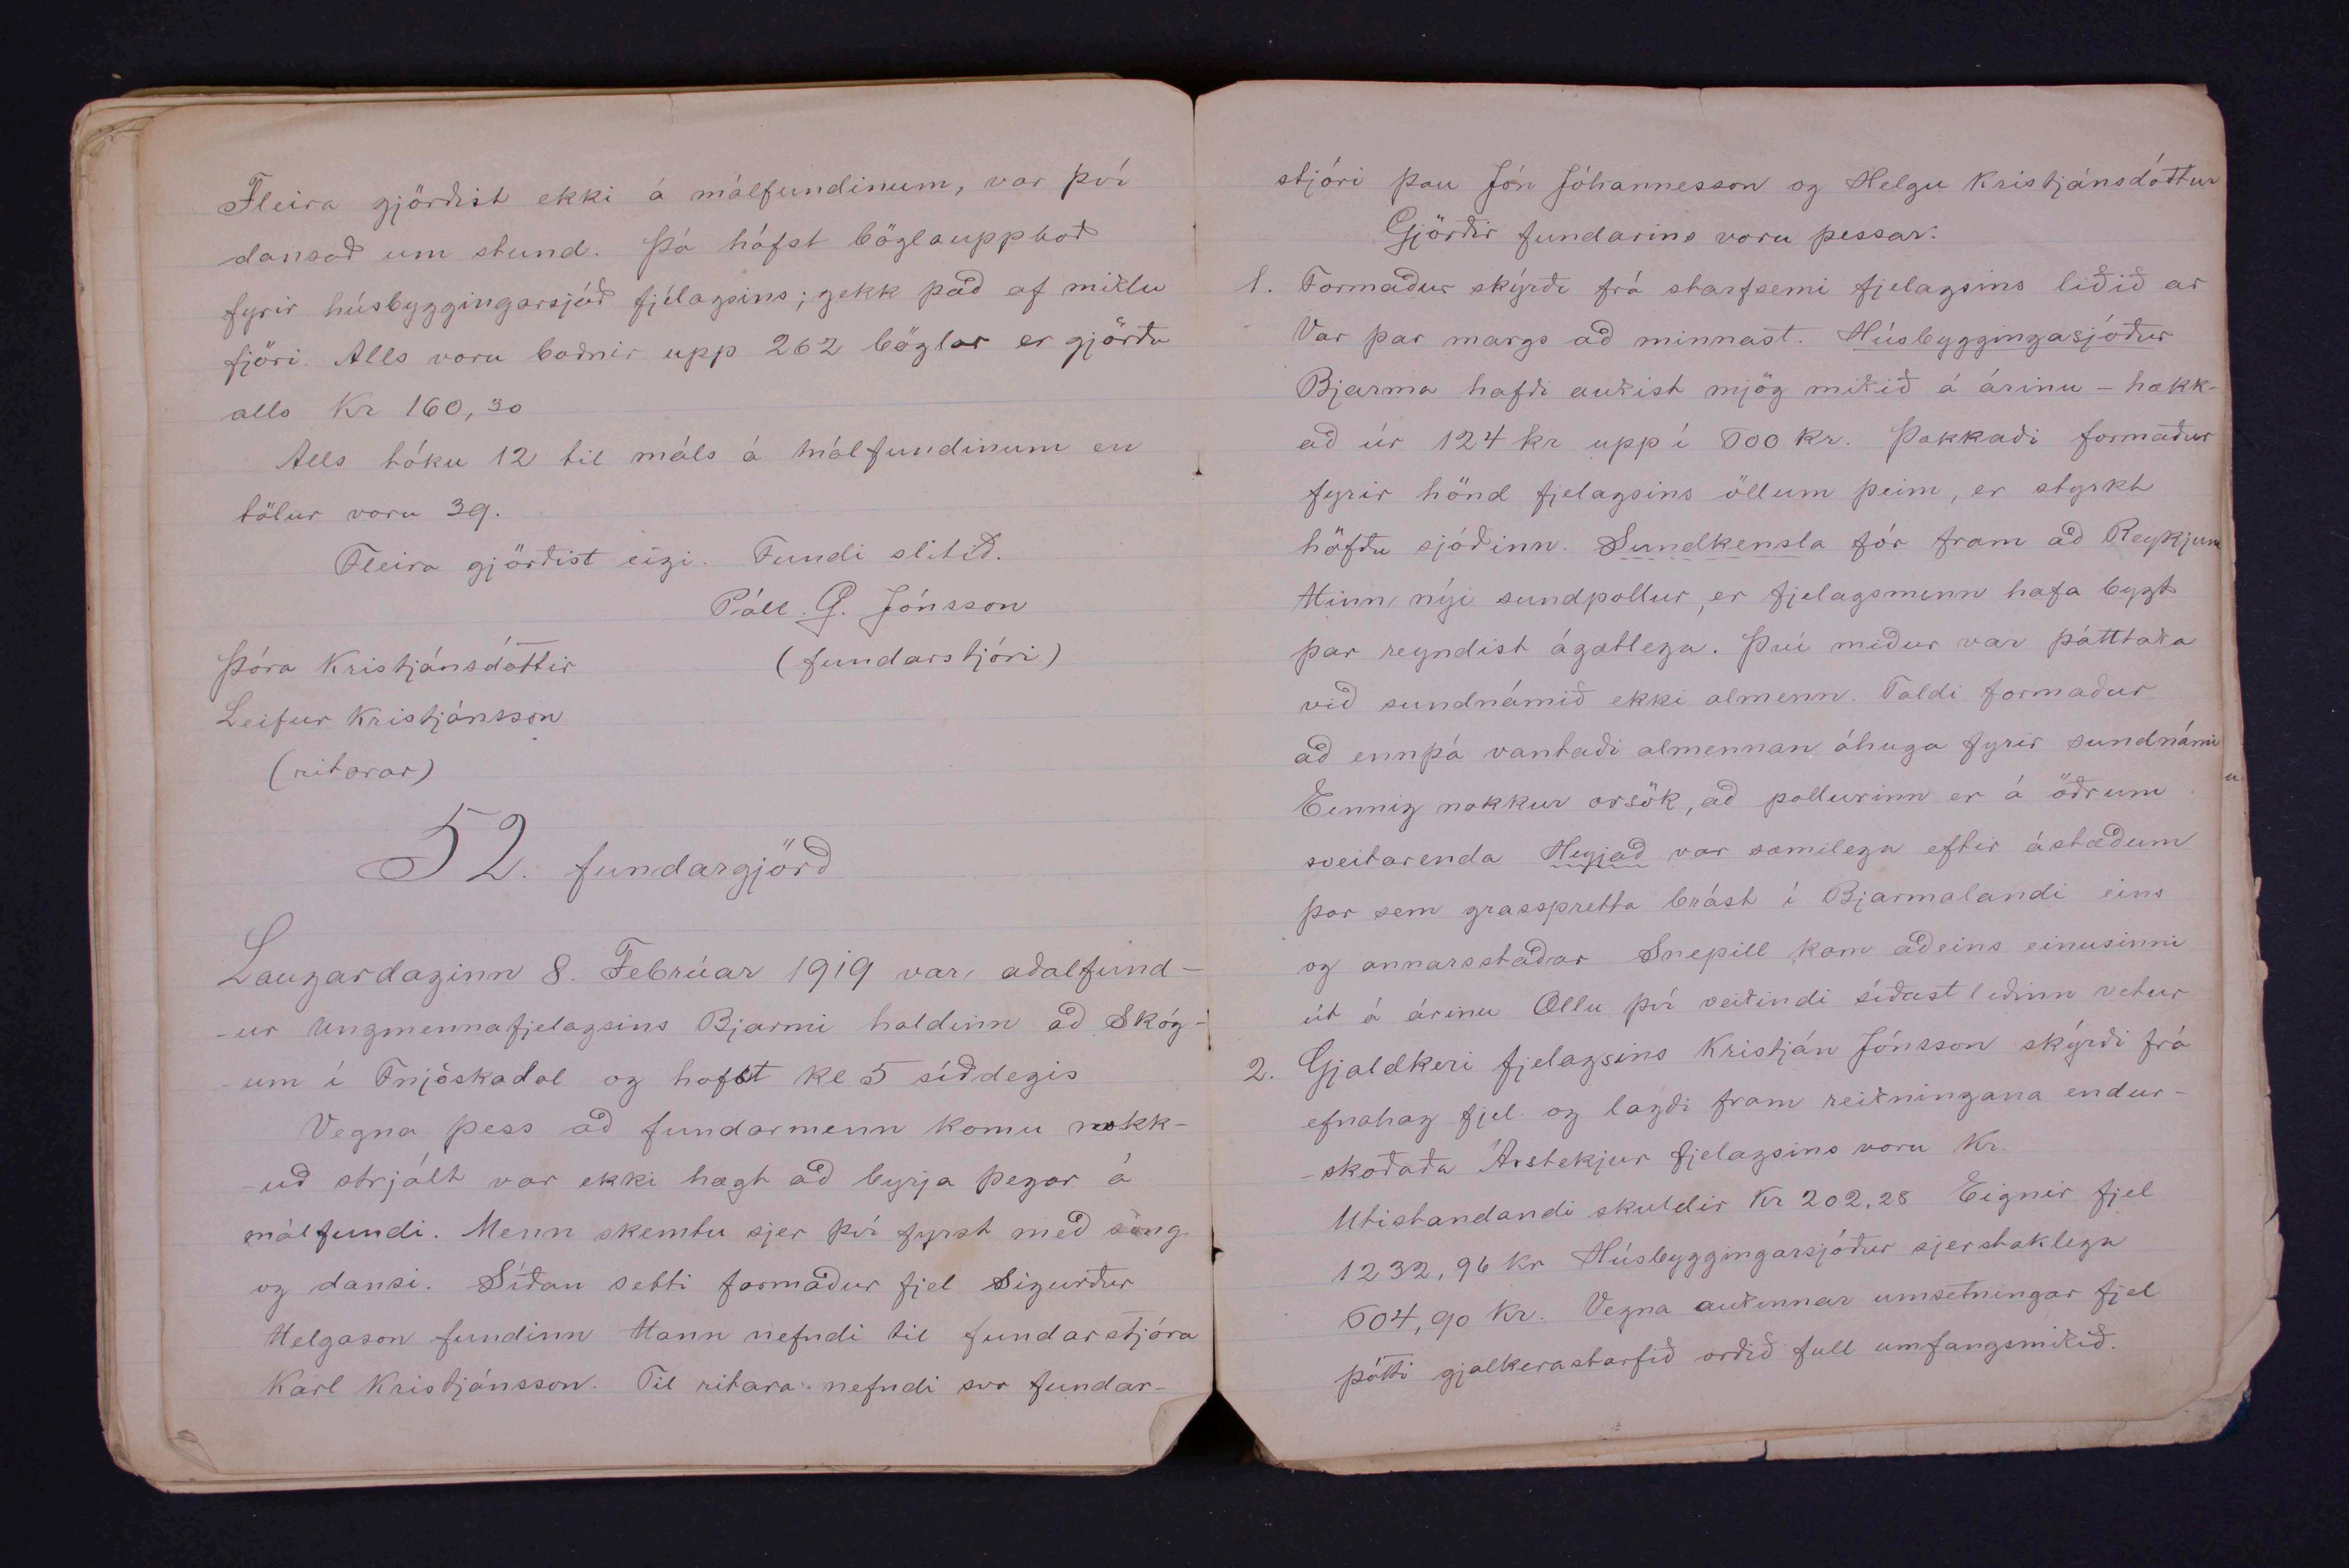 Fleira gjörðist ekki á málfundinum, var því
dansað um stund. Þá hófst böglauppboð
fyrir húsbyggingarsjóð fjélagsins; gekk það af miklu
fjöri. Alls voru boðnir upp 262 böglar er gjörðu
alls Kr 160,30
Alls tóku 12 til máls á málfundinum en
tölur voru 39.
Fleira gjörðist eigi. Fundi slitið.
Páll. G. Jónsson
Þóra Kristjánsdóttir (fundarstjóri)
Leifur Kristjánsson
(ritarar)
52. fundargjörð
Laugardaginn 8. Febrúar 1919 var aðalfund-
-ur Ungmennafjelagsins Bjarmi haldinn að Skóg-
um í Fnjóskadal og hofst kl 5 síðdegis
Vegna þess að fundarmenn komu nokk-
-uð strjált var ekki hægt að byrja þegar á
málfundi. Menn skemtu sjer því fyrst með söng
og dansi. Síðan setti formaður fjel Sigurður
Helgason fundinn Hann nefndi til fundarstjóra
Karl Kristjánsson. Til ritara nefndi svo fundar-
stjóri þau Jón Jóhannesson og Helgu Kristjánsdóttur
Gjörðir fundarins voru þessar:
1. Formaður skýrði frá starfsemi fjelagsins liðið ár
Var þar margs að minnast. Húsbyggingasjóður
Bjarma hafði aukist mjög mikið á árinu – hækk-
að úr 124 kr upp í 500 Kr. Þakkaði formaður
fyrir hönd fjelagsins öllum þeim, er styrkt
höfðu sjóðinn. Sundkensla fór fram að Reykjum
Hinn nýi sundpollur, er fjelagsmenn hafa bygt
þar reyndist ágætlega. Því miður var þátttaka
við sundnámið ekki almenn. Taldi formaður
að ennþá vantaði almennan áhuga fyrir sundnámi
Eennig nokkur orsök, að pollurinn er á öðrum
sveitarenda Heyjað var sæmilega eftir ástæðum
þar sem grasspretta brást í Bjarmalandi eins
og annarsstaðar Snepill kom aðeins einusinni
út á árinu Ollu því veikindi síðast liðinn vetur
2. Gjaldkeri fjelagsins Kristján Jónsson skýrði frá
efnahag fjel. og lagði fram reikningana endur-
-skoðaða Árstekjur fjelagsins voru Kr.
Utistandandi skuldir Kr 202,28 Eignir fjel
1232,96 Kr Húsbyggingarsjóður sjerstaklega
504,90 Kr. Vegna aukinnar umsetningar fjel
þótti gjalkerastarfið orðið full umfangsmikið.